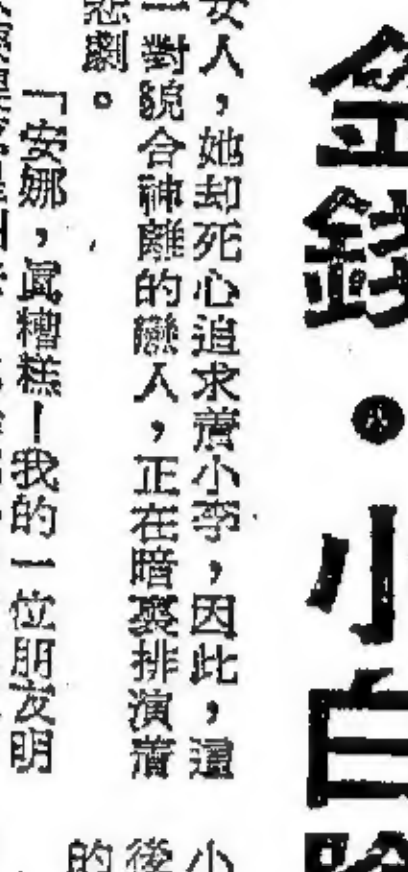 金錢・小白臉
女人，她却死心追求着小李，因此，這
一對貌合神離的戀人，正在暗裏排演着
悲劇。
「安娜，眞糟糕！我的一位朋友明
小
後
的